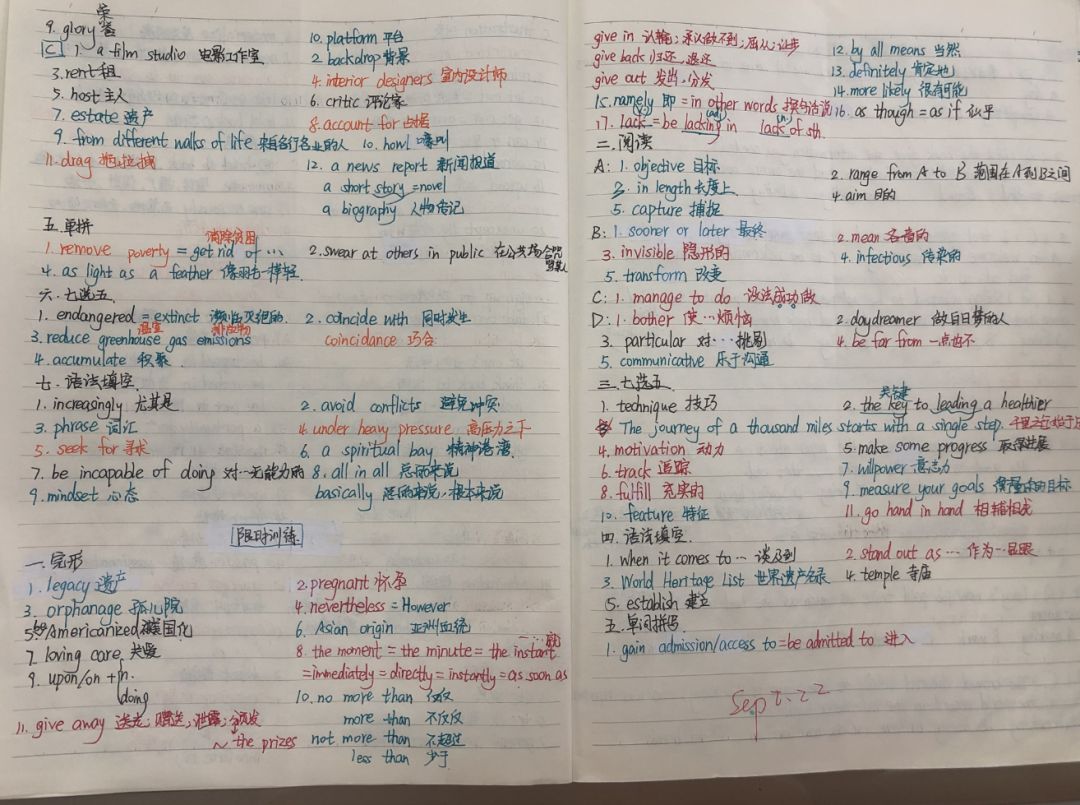 9. glory 荣誉
10. platform 平台
C 1. a film studio 电影工作室
2 backdrop 背景
3. rent 租
4. interior designers 室内设计师
5. host 主人
6. critic 评论家
7. estate 遗产
8. account for 占据
9. from different walks of life 来自各行各业的人
10. howl 嚎叫
11. drag 拖拉拽
12. a news report 新闻报道
a short story = novel
a biography 人物传记
五. 单拼
1. remove poverty 消除贫困 = get rid of …
2. swear at others in public 在公共场合咒骂某人
4. as light as a feather 像羽毛一样轻
六. 七选五
1. endangered = extinct 濒临灭绝的
2. coincide with 同时发生
3. reduce greenhouse gas emissions 温室 排放物
coincidance 巧合
4. accumulate 积聚
七. 语法填空
1. increasingly 尤其是
2. avoid conflicts 避免冲突
3. phrase 词汇
4. under heavy pressure 高压力之下
5. seek for 寻求
6. a spiritual bay 精神港湾
7. be incapable of doing 对…无能力的
8. all in all 总而来说
9. mindset 心态
basically 总而来说, 根本来说
限时训练
一. 完形
1. legacy 遗产
2. pregnant 怀孕
3. orphanage 孤儿院
4. nevertheless = However
5. be Americanized 被美国化
6. Asian origin 亚洲血统
7. loving care 关爱
8. the moment = the minute = the instant 一…就
= immediately = directly = instantly = as soon as
9. upon/on + n. doing
10. no more than 仅仅
more than 不仅仅
11. give away 送走; 赠送; 泄露; 颁发
~ the prizes
not more than 不超过
less than 少于
give in 认输; 承认做不到; 屈从; 让步
give back 归还, 退还
give out 发出; 分发
12. by all means 当然
13. definitely 肯定地
14. more likely 很有可能
15. namely 即 = in other words 换句话说
16. as though = as if 似乎
17. lack (v) = be lacking (adj) in lack (n) of sth.
二. 阅读
A: 1. objective 目标
2. range from A to B 范围在A到B之间
3. in length 长度上
4. aim 目的
5. capture 捕捉
B: 1. sooner or later 最终
2. mean 吝啬的
3. invisible 隐形的
4. infectious 传染的
5. transform 改变
C: 1. manage to do 设法成功做
D: 1. bother 使…烦恼
2. daydreamer 做白日梦的人
3. particular 对…挑剔
4. be far from 一点也不
5. communicative 乐于沟通
三. 七选五
1. technique 技巧
2. the key 关键 to leading a healthier
The journey of a thousand miles starts with a single step. 千里之行始于足
4. motivation 动力
5. make some progress 取得进展
6. track 追踪
7. willpower 意志力
8. fulfill 充实的
9. measure your goals 衡量你的目标
10. feature 特征
11. go hand in hand 相辅相成
四. 语法填空
1. when it comes to … 谈及到
2. stand out as … 作为…显眼
3. World Heritage List 世界遗产名录
4. temple 寺庙
5. establish 建立
五. 单词拼写
1. gain admission/access to = be admitted to 进入